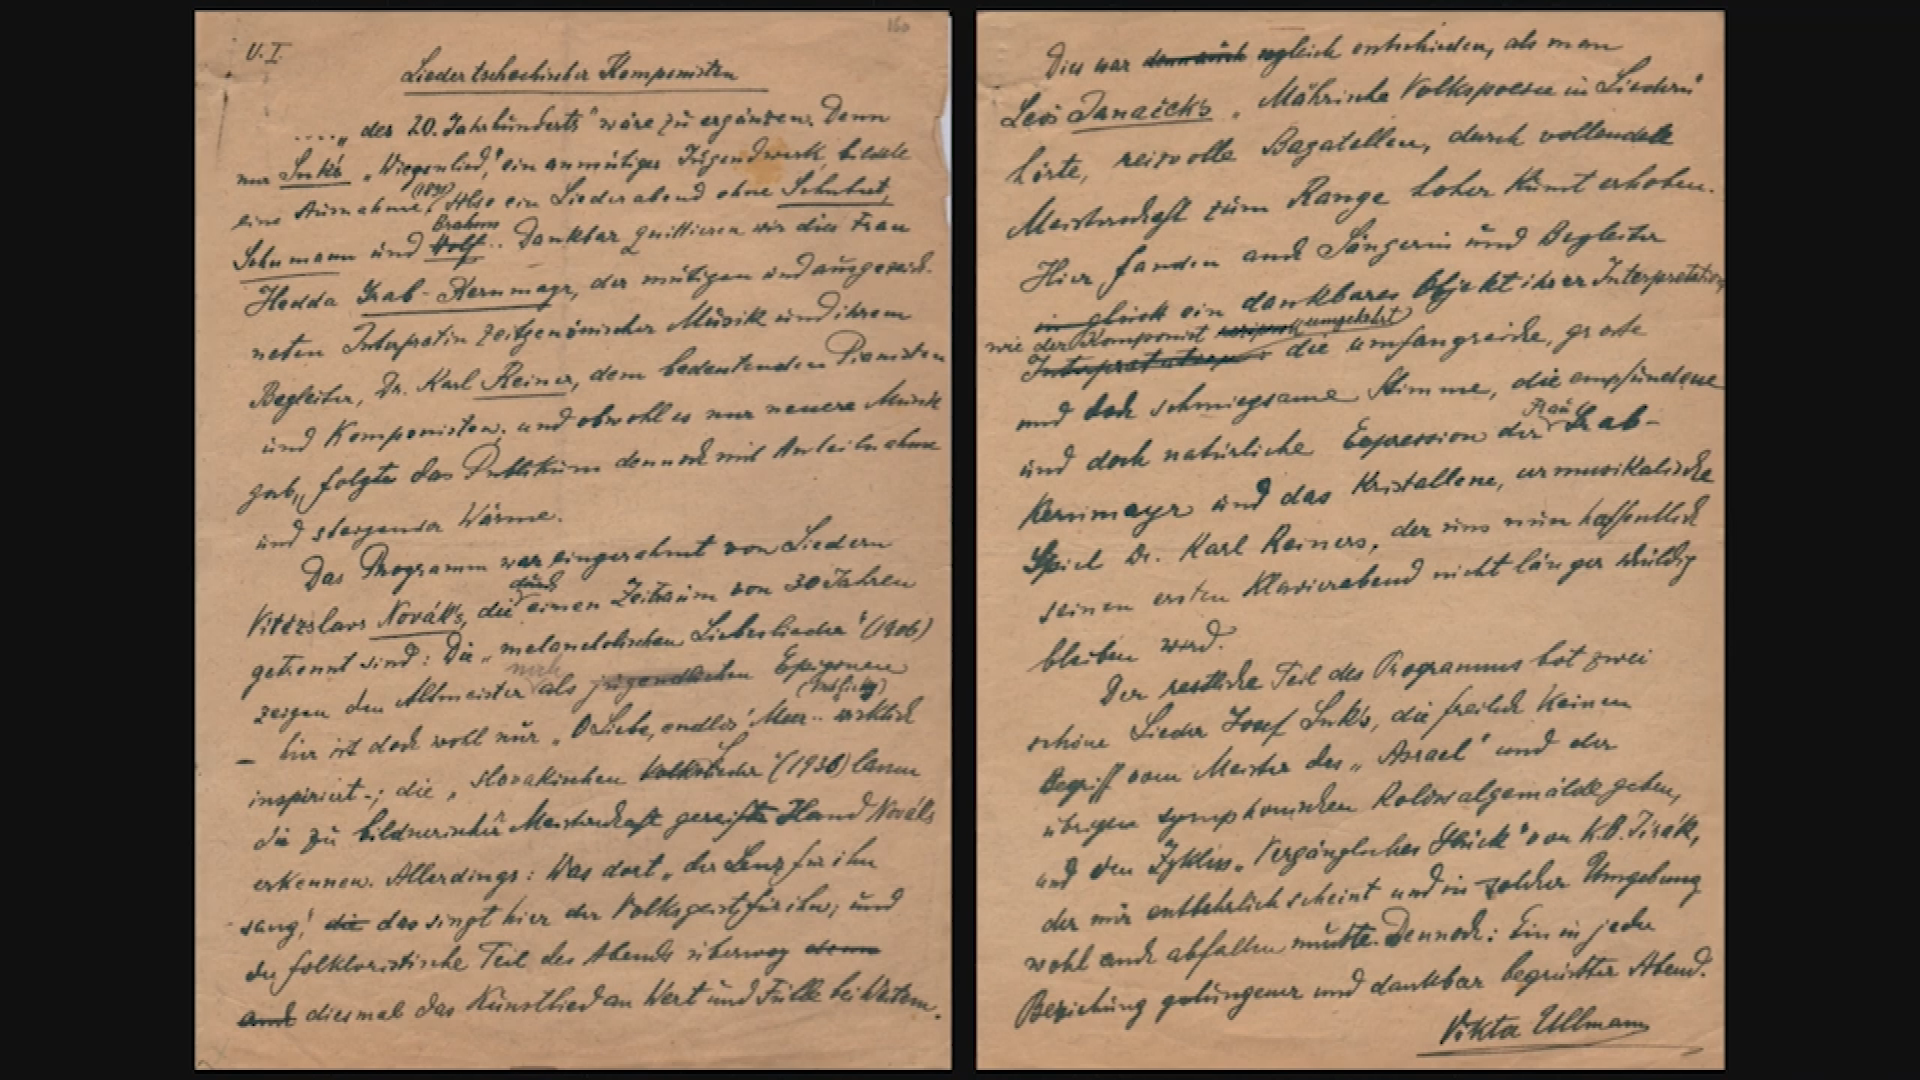 160
V. I.
Lieder tschechischer Komponisten
...." des 20. Jahrhunderts" wäre zu ergänzen. Denn
nur Suk's "Wiegenlied", ein anmutiges Jugendwerk, bildete
eine Ausnahme. (1891) Also ein Liederabend ohne Schubert,
Brahms
Schumann und Wolf... Dankbar quittieren wir dies Frau
Hedda Grab-Kernmayr, der mutigen und ausgezeich-
neten Interpretin zeitgenössischer Musik und ihrem
Begleiter, Dr. Karl Reiner, dem bedeutenden Pianisten
und Komponisten; und obwohl es nur neuere Musik
gab, folgte das Publikum dennoch mit Anteilnahme
und steigender Wärme.
Das Programm war eingerahmt von Liedern
durch
Vitězslavs Novák's, die einen Zeitraum von 30 Jahren
getrennt sind: Die "melancholischen Liebeslieder" (1906)
zeigen den Altmeister noch als jugendlichen Epigonen
- hier ist doch wohl nur "O Liebe, endlos' Meer.. wirklich
inspiriert -; die "slovakischen Volkslieder" (1936) lassen
die zu bildnerischer Meisterschaft gereifte Hand Nováks
erkennen. Allerdings: Was dort "der Lenz für ihn
sang", die das singt hier der Volksgeist für ihn; und
der folkloristische Teil des Abends überwog denn
auch diesmal das Kunstlied an Wert und Fülle bei Weitem.
Dies war denn auch sogleich entschieden, als man
Leoš Janačeks "Mährische Volkspoesie in Liedern"
hörte, reizvolle Bagatellen, durch vollendete
Meisterschaft zum Range hoher Kunst erhoben.
Hier fanden auch Sängerin und Begleiter
ein dankbares Objekt ihrer Interpretation
wie der Komponist umgekehrt
Interpretation die umfangreiche, große
und doch schmiegsame Stimme, die empfundene
und doch natürliche Expression der Frau Grab-
Kernmayr und das kristallene, urmusikalische
Spiel Dr. Karl Reiners, der uns nun hoffentlich
seinen ersten Klavierabend nicht länger schuldig
bleiben wird.
Der restliche Teil des Programms bot zwei
schöne Lieder Josef Suk's, die freilich keinen
Begriff vom Meister des "Asrael" und der
übrigen symphonischen Kolossalgemälde geben,
und den Zyklus "Vergängliches Glück" von K.B. Jirák,
der mir entbehrlich scheint und in solcher Umgebung
wohl auch abfallen mußte. Dennoch: Ein in jeder
Beziehung gelungener und dankbar begrüßter Abend.
Viktor Ullmann